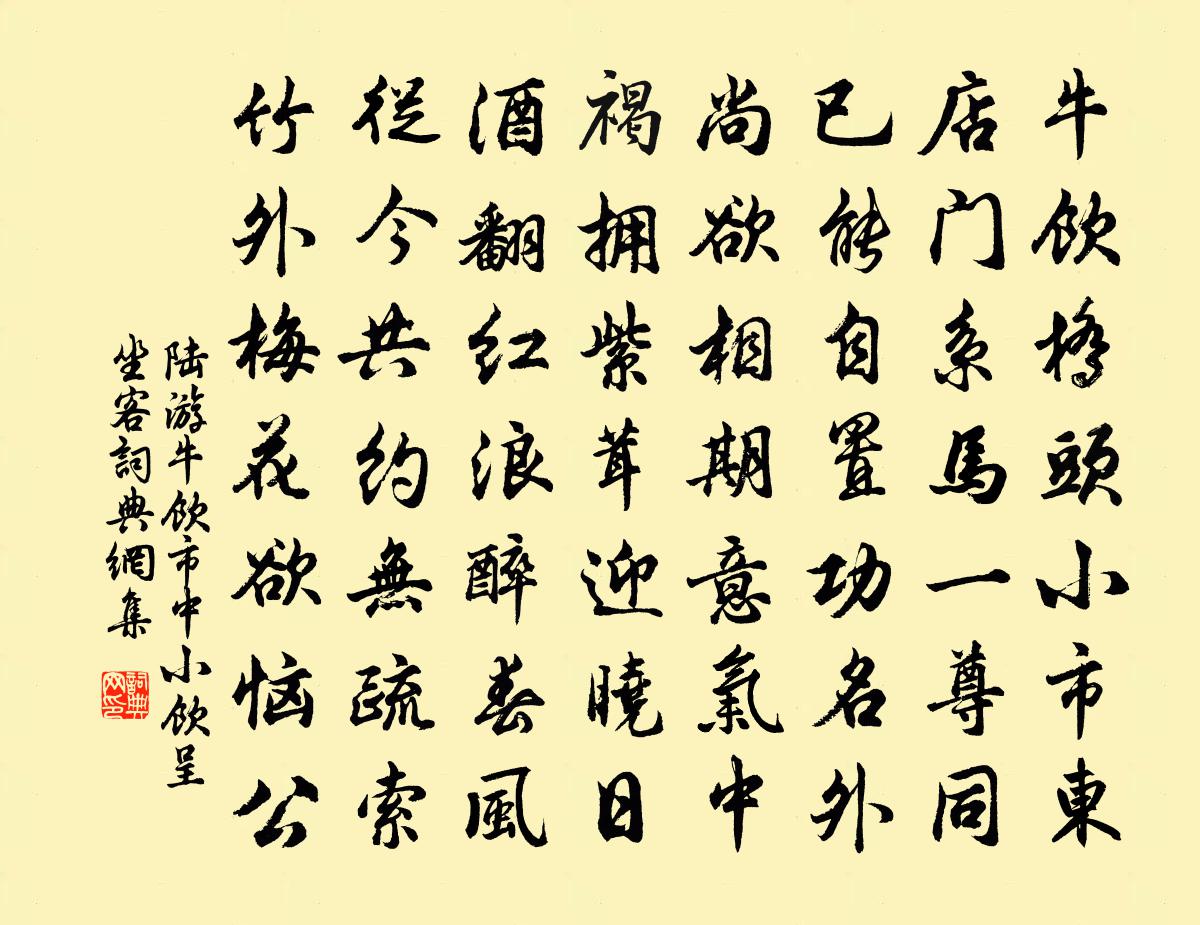 牛飲橋頭小市東
店门系馬一尊同
已能自置功名外
尚欲相期意氣中
褐拥紫茸迎曉日
酒翻红浪醉春風
從今共约無疏索
竹外梅花欲恼公
陆游牛飲市中小飲呈
坐客詞典網集
詞典网印